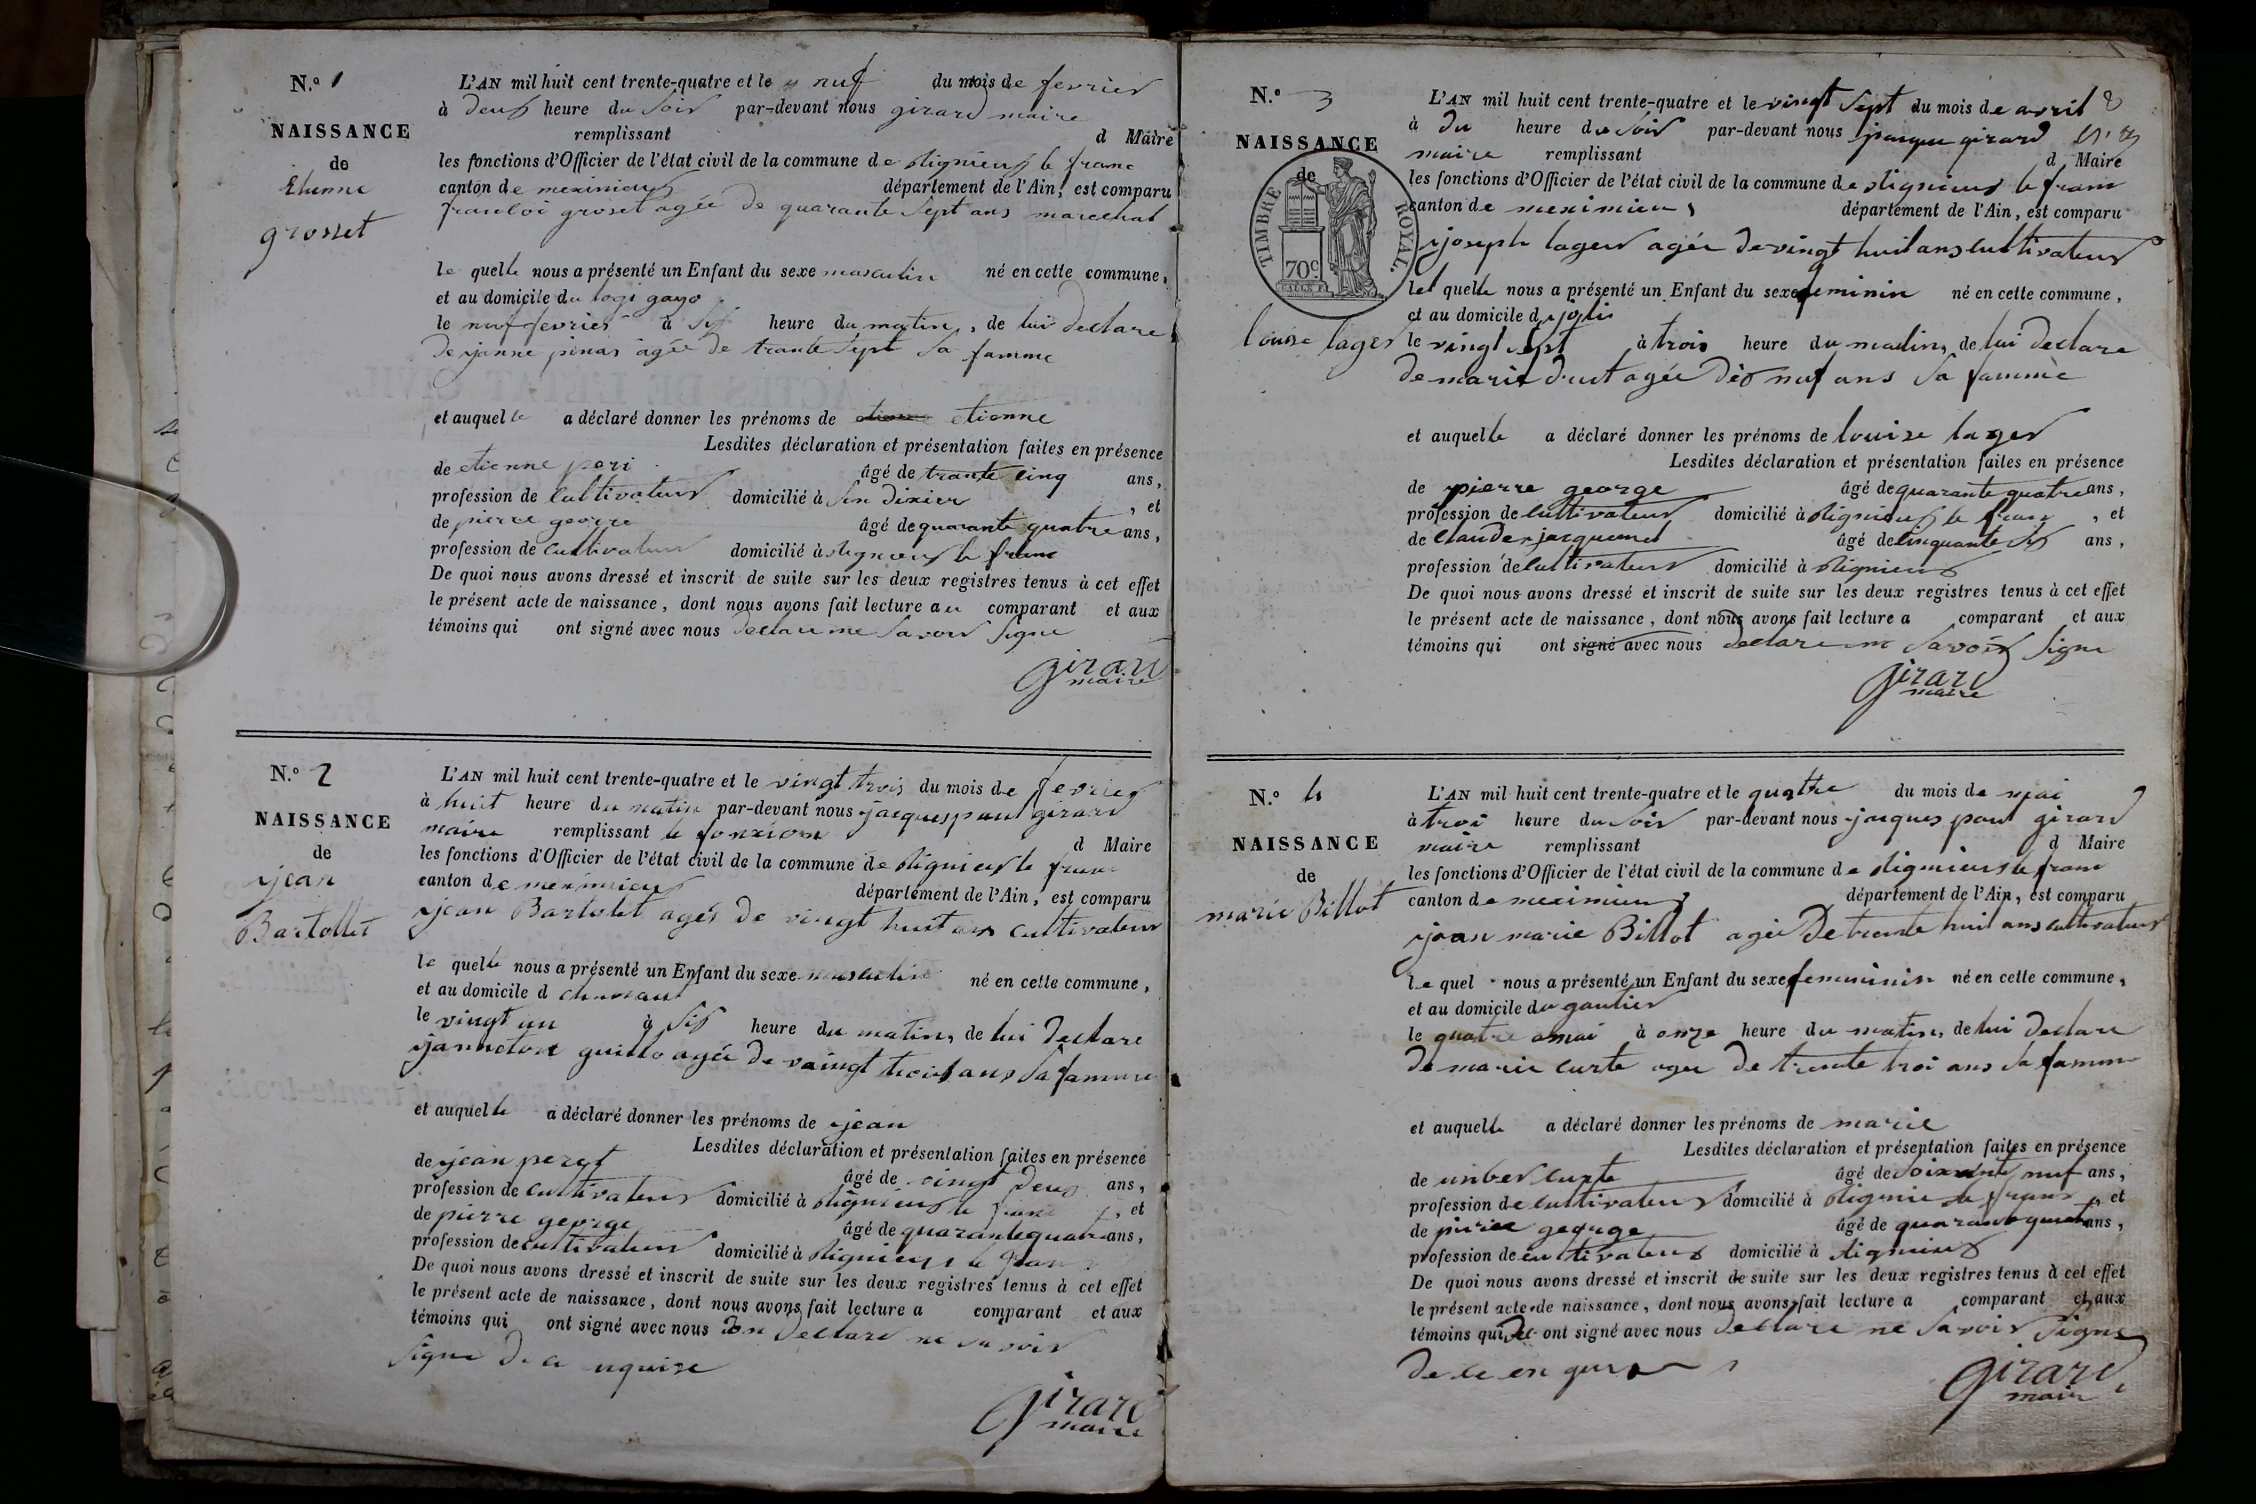 N.o 1
NAISSANCE
de
Etienne
grosset
L'AN mil huit cent trente-quatre et le nuf du mois de fevrier
à deux heure du soir par-devant nous girard maire
remplissant d Maire
les fonctions d'Officier de l'état civil de la commune de rignieux le franc
canton de meximieux département de l'Ain, est comparu
groset agée de quarante sept ans marechal
le quelle nous a présenté un Enfant du sexe masculin né en cette commune,
et au domicile du logi gayo
le nuf fevrier à six heure du matin, de lui declare
de janne pinas agée de trante sept sa famme
et auquelle a déclaré donner les prénoms de etienne etienne
Lesdites déclaration et présentation faites en présence
de etienne peri âgé de trante cinq ans,
profession de cultivateur domicilié à sin dixier, et
de pierre george âgé de quarante quatre ans,
profession de cultivateur domicilié à rignieux le franc
De quoi nous avons dressé et inscrit de suite sur les deux registres tenus à cet effet
le présent acte de naissance, dont nous avons fait lecture au comparant et aux
témoins qui ont signé avec nous declare ne savoir signe
girard
maire
N.o 2
NAISSANCE
de
jean
Bartollet
L'AN mil huit cent trente-quatre et le vingt trois du mois de fevrier
à huit heure du matin par-devant nous jacques paul girard
maire remplissant le fonxion d Maire
les fonctions d'Officier de l'état civil de la commune de rignieux le franc
canton de meximieux département de l'Ain, est comparu
jean Bartolet agés de vingt huit ans cultivateur
le quelle nous a présenté un Enfant du sexe masculin né en cette commune,
et au domicile d
le vingt un à six heure du matin, de lui declare
janneton guillo agée de vaingt ans sa famme
et auquelle a déclaré donner les prénoms de jean
Lesdites déclaration et présentation faites en présence
de jean peret âgé de vingt deux ans,
profession de cultivateur domicilié à rignieux le franc, et
de pierre george âgé de quarante quatre ans,
profession de cultivateur domicilié à rignieux le franc
De quoi nous avons dressé et inscrit de suite sur les deux registres tenus à cet effet
le présent acte de naissance, dont nous avons fait lecture a comparant et aux
témoins qui ont signé avec nous on declare ne savoir
signe de ce
girard
maire
N.o 3
NAISSANCE
de
TIMBRE ROYAL.
70c
louise lager
L'AN mil huit cent trente-quatre et le vingt sept du mois de avril
à du heure du soir par-devant nous jaque girard
maire remplissant d Maire
les fonctions d'Officier de l'état civil de la commune de rignieux le franc
canton de meximieux département de l'Ain, est comparu
joseph lager agée de vingt huit ans cultivateur
lel quelle nous a présenté un Enfant du sexe feminin né en cette commune,
et au domicile d
le vingt sept à trois heure du matin, de lui declare
de marie drut agée dis nuf ans sa famme
et auquelle a déclaré donner les prénoms de louise lager
Lesdites déclaration et présentation faites en présence
de pierre george âgé de quarante quatre ans,
profession de cultivateur domicilié à rignieux le franc, et
de claude jacquemet âgé de cinquante six ans,
profession de cultivateur domicilié à rignieux
De quoi nous avons dressé et inscrit de suite sur les deux registres tenus à cet effet
le présent acte de naissance, dont nous avons fait lecture a comparant et aux
témoins qui ont signé avec nous declare ne savoir signe
girard
maire
N.o 4
NAISSANCE
de
marie Billot
L'AN mil huit cent trente-quatre et le quatre du mois de mai
à troi heure du soir par-devant nous jacques paul girard
maire remplissant d Maire
les fonctions d'Officier de l'état civil de la commune de rignieux le franc
canton de meximieux département de l'Ain, est comparu
jean marie Billot agée de trente huit ans cultivateur
le quel nous a présenté un Enfant du sexe femininin né en cette commune,
et au domicile du gautier
le quatre mai à onze heure du matin, de lui declare
de marie curte agee de trente troi ans sa famme
et auquelle a déclaré donner les prénoms de marie
Lesdites déclaration et présentation faites en présence
de curte âgé de soixante nuf ans,
profession de cultivateur domicilié à rignieu le franc, et
de pierre george âgé de quarante quatre ans,
profession de cultivateur domicilié à rignieux
De quoi nous avons dressé et inscrit de suite sur les deux registres tenus à cet effet
le présent acte de naissance, dont nous avons fait lecture a comparant et aux
témoins qui ont signé avec nous declare ne savoir signe
de ce
girard
maire